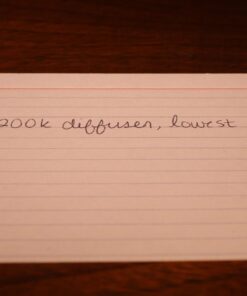 200k diffuser, lowest